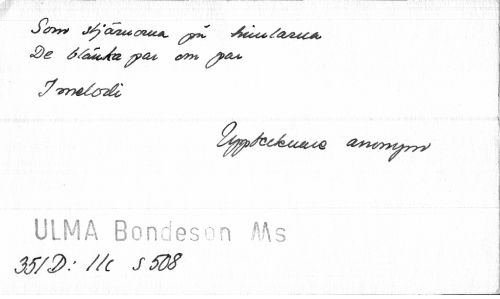 Som stjärnorna på himlarna
De blänka par om par
1 melodi
Upptecknare anonym
ULMA Bondeson Ms
351D: 11c s 508